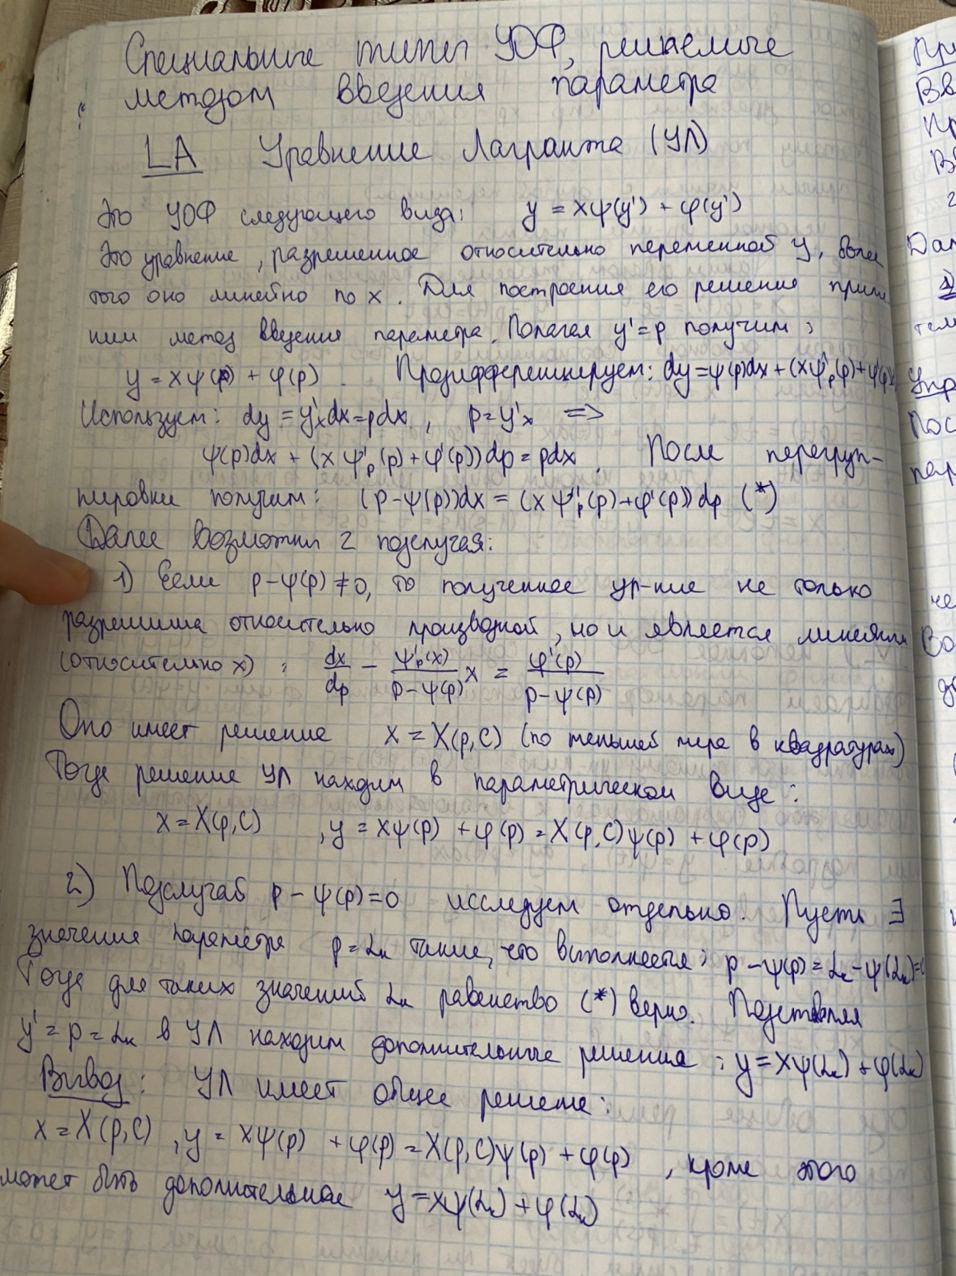 Специальные типы УОФ, решаемые
методом введения параметра
LA Уравнение Лагранжа (УЛ)
Это УОФ следующего вида: y = xψ(y') + φ(y')
Это уравнение, разрешенное относительно переменной y, более
того оно линейно по x. Для построения его решение приме
ним метод введения параметра. Полагая y'=p получим:
y = xψ(p) + φ(p). Продифференцируем: dy=ψ(p)dx+(xψ'p(p)+φ'(p))
Используем: dy = y'x dx = pdx, p = y'x =>
ψ(p)dx + (xψ'p(p) + φ'(p))dp = pdx. После перегруп-
пировки получим: (p-ψ(p))dx = (xψ'p(p)+φ'(p))dp (*)
Далее возможны 2 подслучая:
1) Если p-ψ(p)≠0, то полученное ур-ние не только
разрешима относительно производной, но и является линейным
(относительно x): dx/dp - ψ'p(x)/(p-ψ(p)) x = φ'(p)/(p-ψ(p))
Оно имеет решение x = X(p,C) (по меньшей мере в квадратурах)
Тогда решение УЛ находим в параметрическом виде:
x = X(p,C), y = xψ(p) + φ(p) = X(p,C)ψ(p) + φ(p)
2) Подслучай p - ψ(p)=0 исследуем отдельно. Пусть ∃
значение параметра p=αk такие, что выполняется: p-ψ(p)=αk-ψ(αk)=0
Тогда для таких значений αk равенство (*) верно. Подставляя
y'=p=αk в УЛ находим дополнительные решения: y=xψ(αk)+φ(αk)
Вывод: УЛ имеет общее решение:
x = X(p,C), y = xψ(p) + φ(p) = X(p,C)ψ(p) + φ(p), кроме этого
может быть дополнительное y=xψ(αk)+φ(αk)